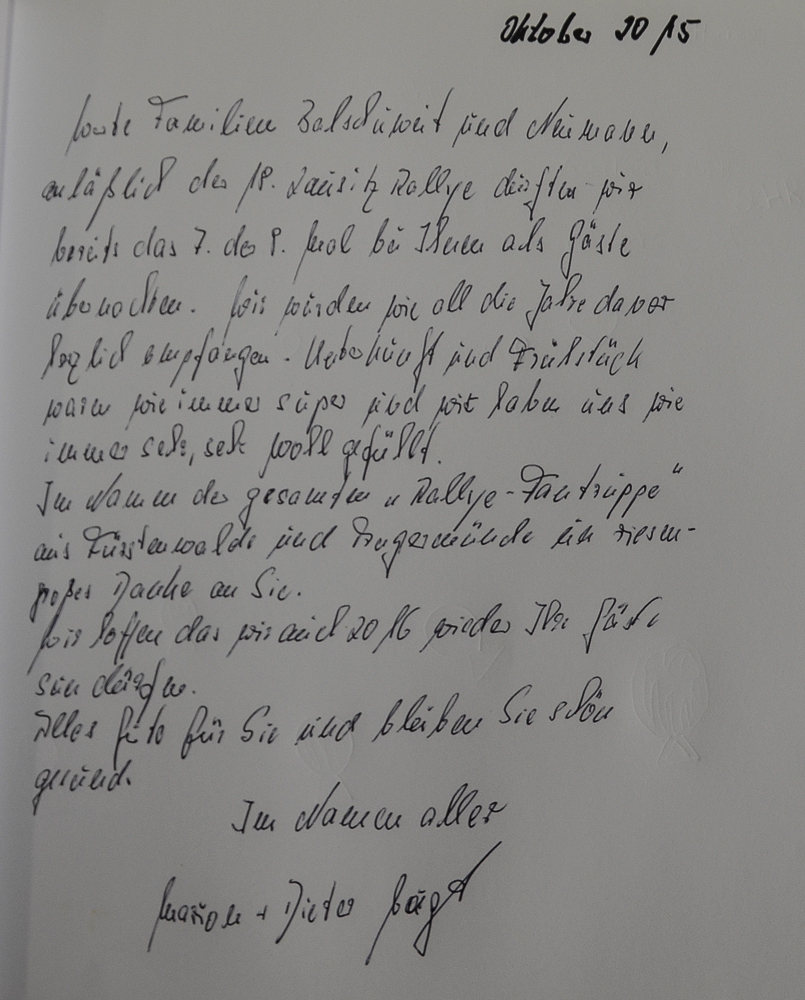 Oktober 2015
Familien Balschuweit und Neumann,
anläßlich der 18. Lausitz Rallye durften wir
bereits das 7. oder 8. Mal bei Ihnen als Gäste
übernachten. Wir wurden wie all die Jahre davor
herzlich empfangen. Unterkunft und Frühstück
waren wie immer super und wir haben uns wie
immer sehr, sehr wohl gefühlt.
Im Namen der gesamten „Rallye-Fantruppe“
aus Fürstenwalde und Angermünde ein riesen-
großes Danke an Sie.
Wir hoffen das wir auch 2016 wieder Ihre Gäste
sein dürfen.
Alles Gute für Sie und bleiben Sie schön
gesund.
Im Namen aller
Marion + Dieter